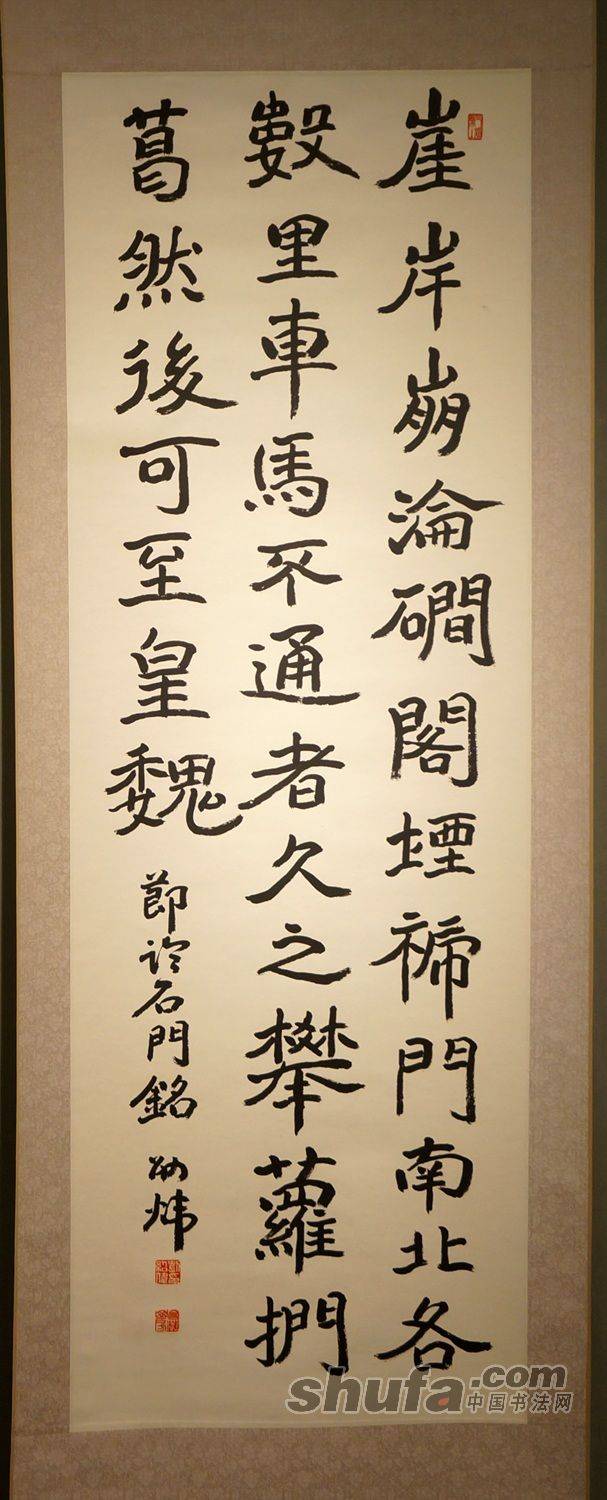 崖岸崩淪磵閣堙禘門南北各
數里車馬不通者久之攀蘿捫
葛然後可至皇魏
節臨石門銘 煒
shufa.com
中国书法网